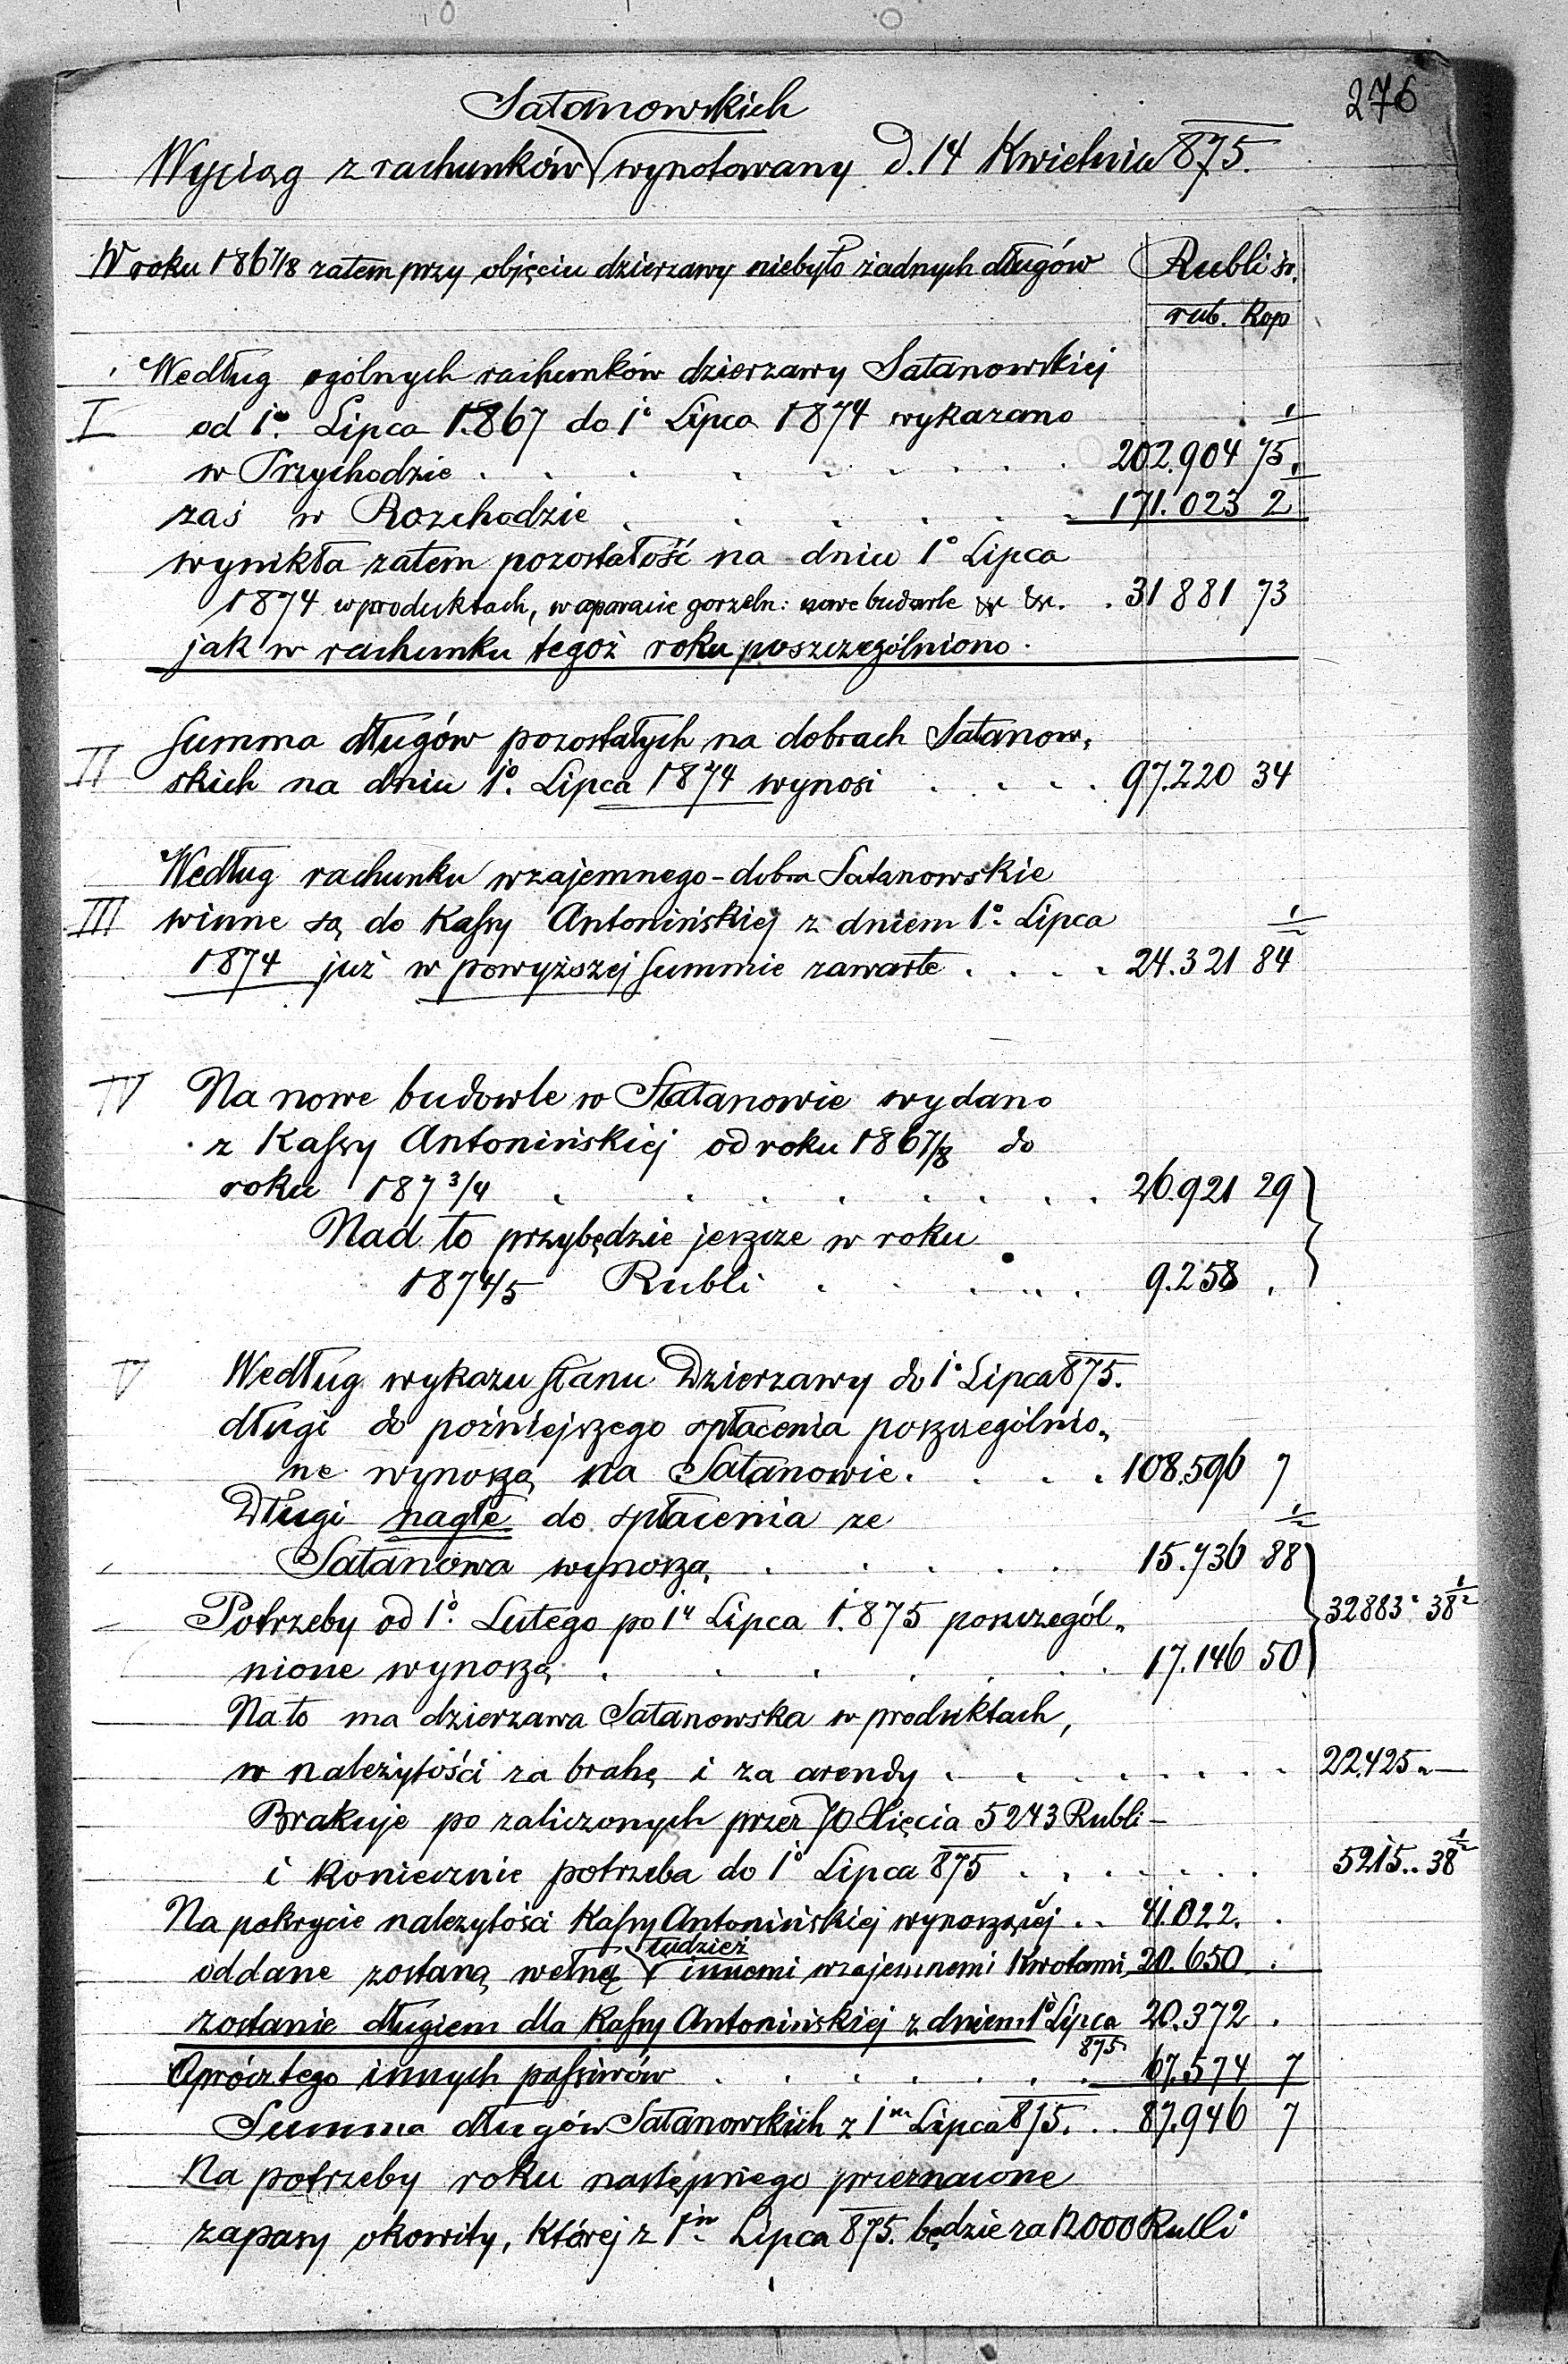 276
Satanowskich
Wyciąg z rachunków wynotowany d. 14 Kwietnia 875.
W roku 1867/8 zatem przy objęciu dzierzawy niebyło żadnych długów
Rubli sr.
rub. Kop
I
Według ogólnych rachunków dzierzawy Satanowskiej
od 1o. Lipca 1.867 do 1o Lipca 1874 wykazano
w Przychodzie . . . . . . . 202.904 75 1/2
zaś w Rozchodzie . . . . . . 171.023 2 1/2
wynikła zatem pozostałość na dniu 1o Lipca
1874 w produktach, w aparacie gorzeln: nowe budowle &r &r. . 31881 73
jak w rachunku tegoż roku poszczególniono.
II
Summa długów pozostałych na dobrach Satanow-
skich na dniu 1o. Lipca 1874 wynosi . . . . 97.220 34
III
Według rachunku wzajemnego - dobra Satanowskie
winne są do Kassy Antonińskiej z dniem 1o. Lipca
1874 już w powyższej Summie zawarte . . . . 24.321 84 1/2
IV
Na nowe budowle w Satanowie wydano
z Kassy Antonińskiej od roku 1867/8 do
roku 1873/4 . . . . . . . 26.921 29
Nad to przybędzie jeszcze w roku
1874/5 Rubli . . . . . 9.258 .
V
Według wykazu stanu Dzierzawy do 1o Lipca 875.
długi do poźniejszego spłacenia poszczególnio-
ne wynoszą na Satanowie . . . . 108.596 7
Długi nagłe do spłacenia ze
Satanowa wynoszą . . . . . 15.736 88 1/2
Potrzeby od 1o. Lutego po 1u Lipca 1.875 poszczegól-
32883. 38 1/2
nione wynoszą . . . . . . 17.146 50
Na to ma dzierzawa Satanowska w produktach,
w należytości za brahę i za arendy . . . . . . . 22.425 „ —
Brakuje po zaliczonych przez JO Xięcia 5243 Rubli —
i koniecznie potrzeba do 1o Lipca 875 . . . . . . 5215 .. 38 1/2
Na pokrycie należytości Kassy Antonińskiej wynoszącej . . 41.022. .
oddane zostaną wełną tudzież innemi wzajemnemi Kwotami 20.650 .
zostanie długiem dla Kassy Antonińskiej z dniem 1o Lipca 875 20.372 .
Oprócz tego innych passiwów . . . . . . 67.574 7
Summa długów Satanowskich z 1m Lipca 875. . . 87.946 7
Na potrzeby roku następnego przeznaczone
zapasy okowity, której z 1m Lipca 875. będzie za 12000 Rubli